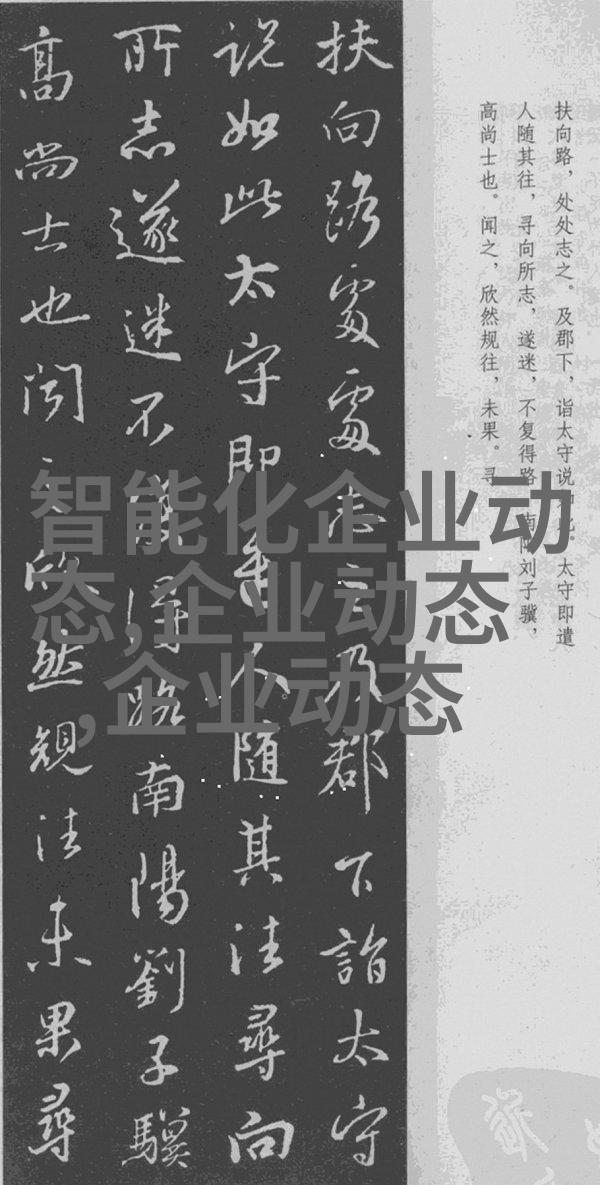 扶向路處處志之及郡下詣太守
说如此太守即遣人随其往尋向
所志遂迷不復得路南陽劉子驥
高尚士也闻之欣然规往未果尋
扶向路，处处志之。及郡下，诣太守说如此。太守即遣
人随其往，寻向所志，遂迷，不复得路。南阳刘子骥，
高尚士也。闻之，欣然规往，未果。寻
智能化企业动
态,企业动态
,企业动态